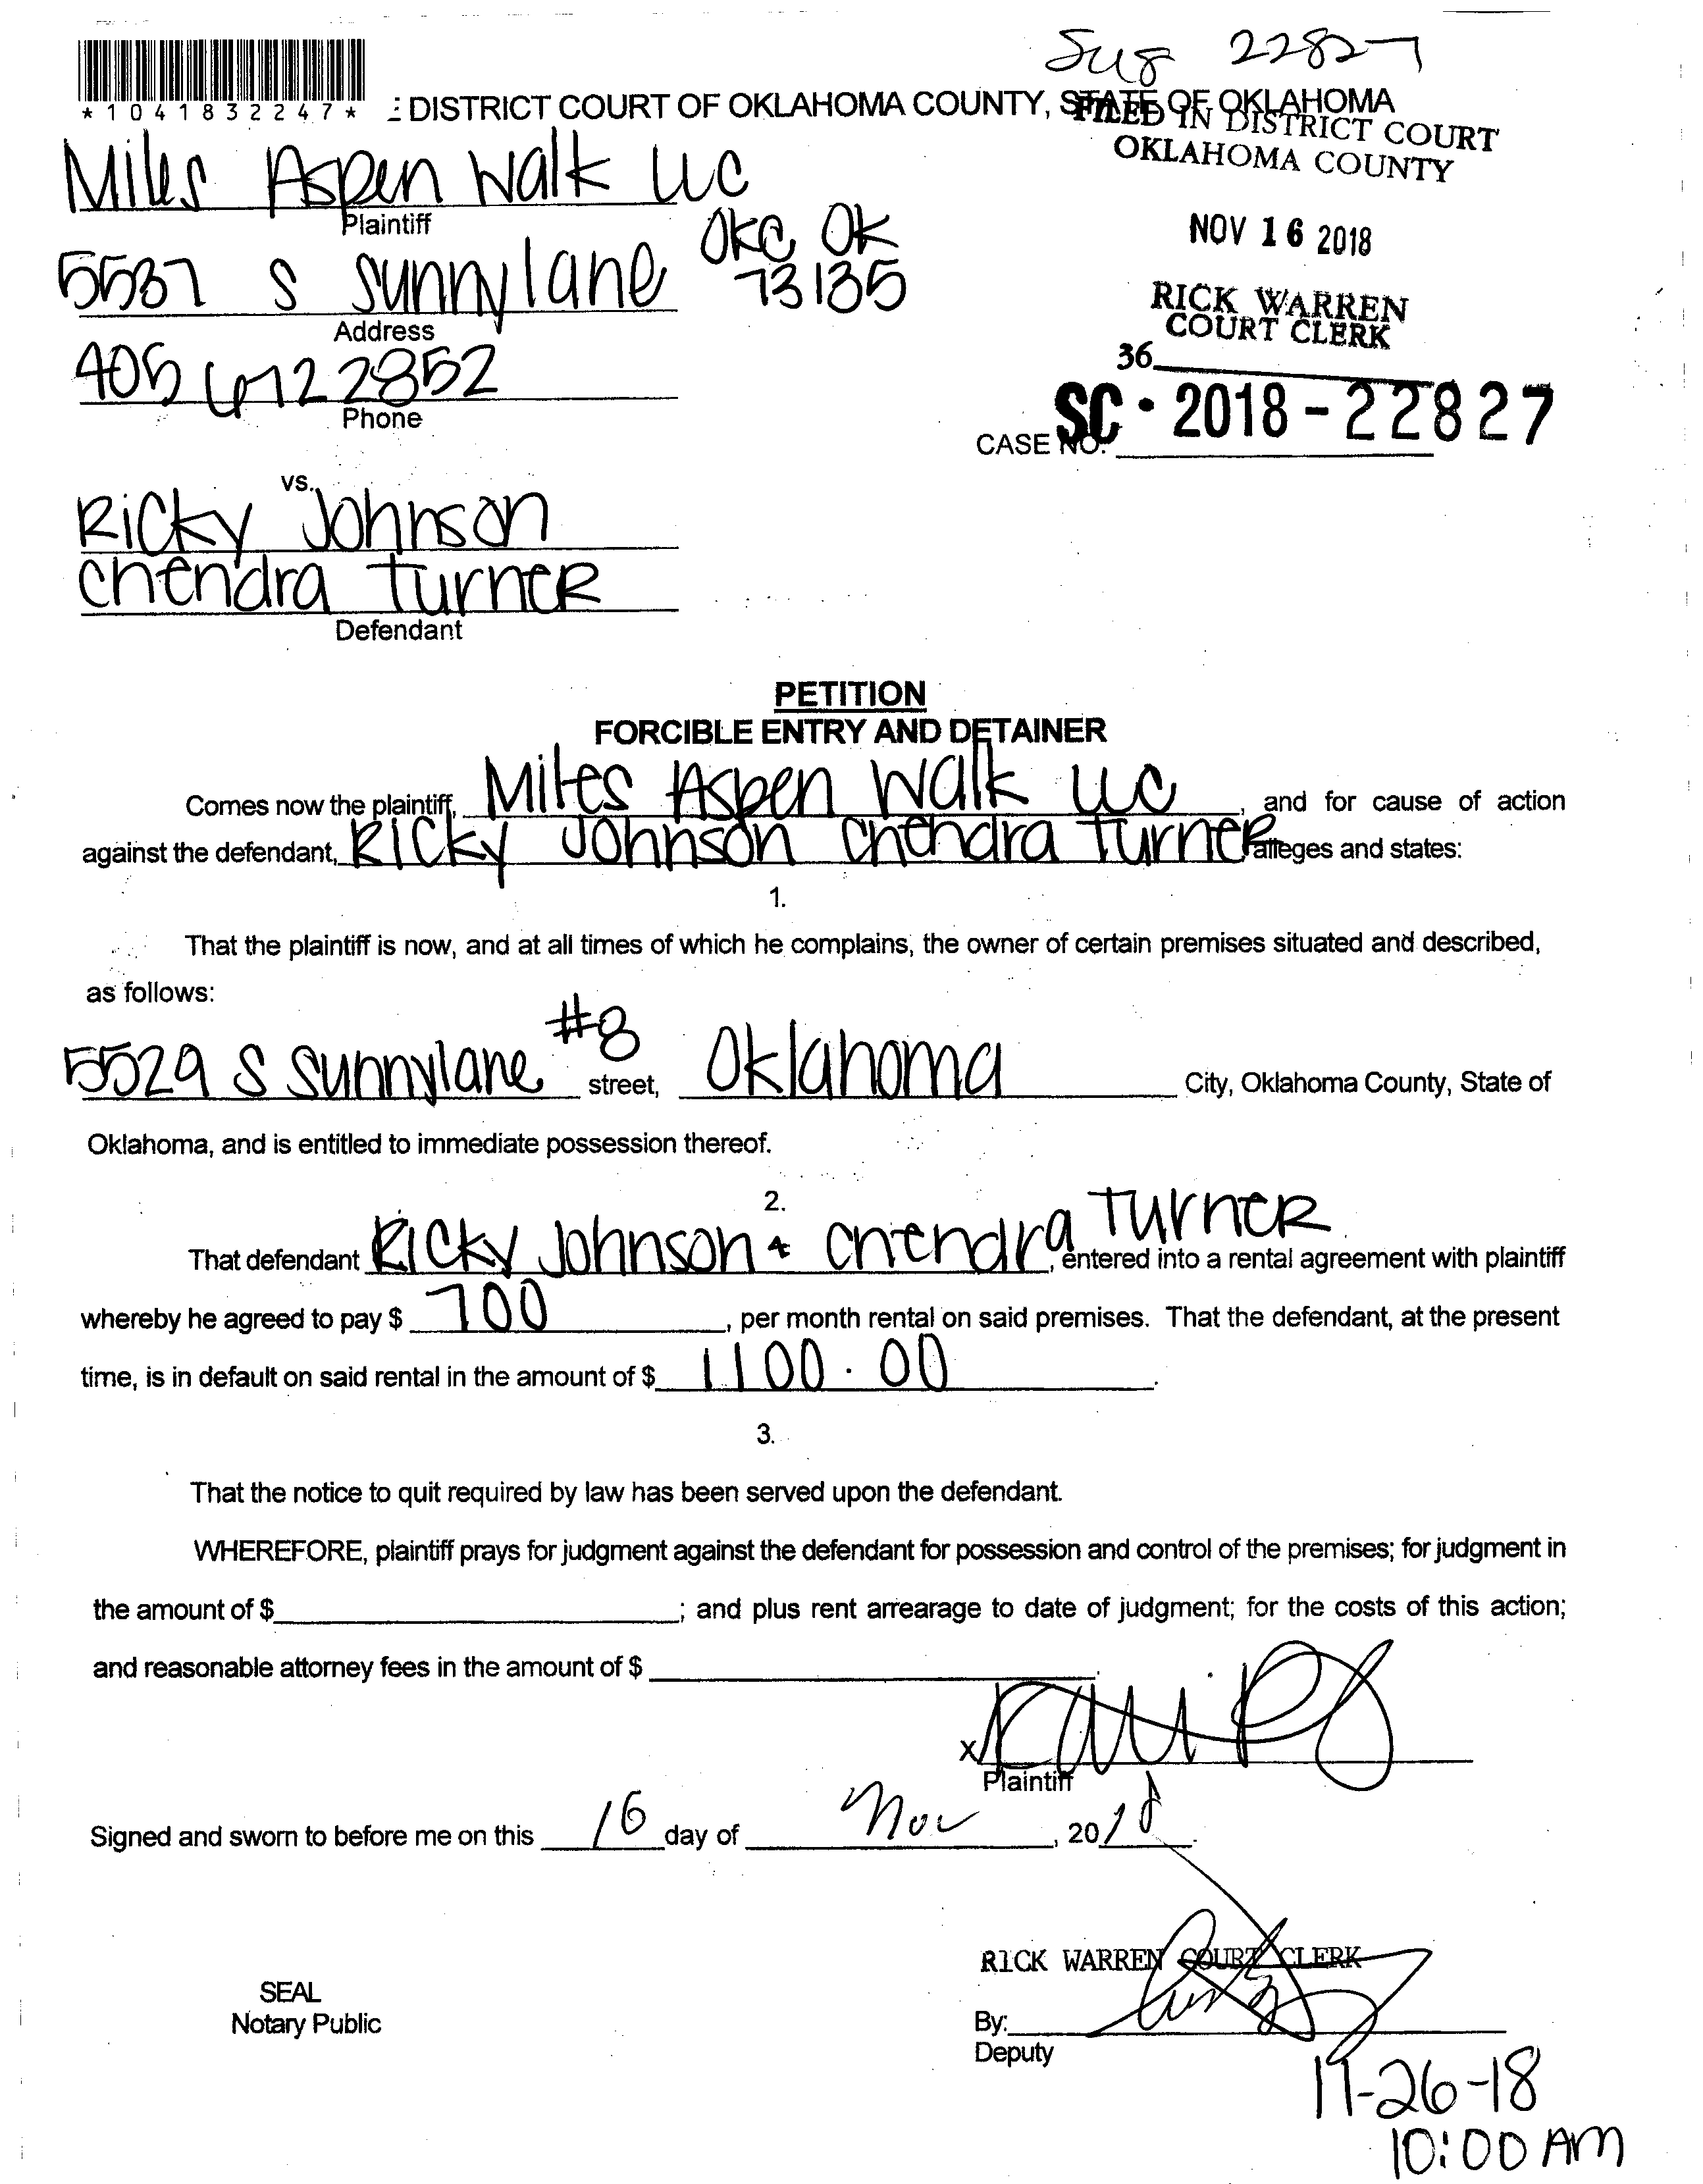 22827
*1041832247*
: DISTRICT COURT OF OKLAHOMA COUNTY, STATE OF OKLAHOMA
FILED IN DISTRICT COURT
OKLAHOMA COUNTY
Miles Aspen Walk LLC
Plaintiff
NOV 16 2018
5537 S Sunnylane OKC OK
73135
Address
RICK WARREN
COURT CLERK
36
405 672 2852
Phone
CASE NO. SC-2018-22827
vs.
Ricky Johnson
Chendra Turner
Defendant
PETITION
FORCIBLE ENTRY AND DETAINER
Comes now the plaintiff, Miles Aspen Walk LLC, and for cause of action
against the defendant, Ricky Johnson Chendra Turner alleges and states:
1.
That the plaintiff is now, and at all times of which he complains, the owner of certain premises situated and described,
as follows:
5529 S Sunnylane #8 street, Oklahoma City, Oklahoma County, State of
Oklahoma, and is entitled to immediate possession thereof.
2.
That defendant Ricky Johnson & Chendra Turner, entered into a rental agreement with plaintiff
whereby he agreed to pay $ 700, per month rental on said premises. That the defendant, at the present
time, is in default on said rental in the amount of $ 1100.00.
3.
That the notice to quit required by law has been served upon the defendant.
WHEREFORE, plaintiff prays for judgment against the defendant for possession and control of the premises; for judgment in
the amount of $ ; and plus rent arrearage to date of judgment; for the costs of this action;
and reasonable attorney fees in the amount of $ .
X
Plaintiff
Signed and sworn to before me on this 16 day of Nov, 2018.
RICK WARREN COURT CLERK
SEAL
Notary Public
By:
Deputy
11-26-18
10:00 AM